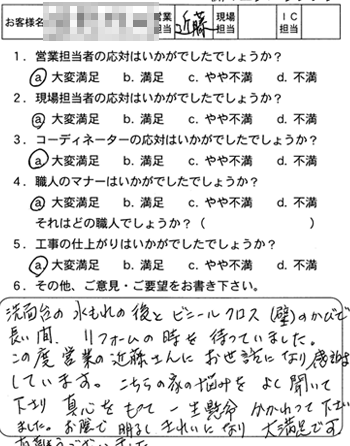 お客様名 営業担当 近藤 現場担当 IC担当
1．営業担当者の応対はいかがでしたでしょうか？
a. 大変満足 b. 満足 c. やや不満 d. 不満
2．現場担当者の応対はいかがでしたでしょうか？
a. 大変満足 b. 満足 c. やや不満 d. 不満
3．コーディネーターの応対はいかがでしたでしょうか？
a. 大変満足 b. 満足 c. やや不満 d. 不満
4．職人のマナーはいかがでしたでしょうか？
a. 大変満足 b. 満足 c. やや不満 d. 不満
それはどの職人でしょうか？（ ）
5．工事の仕上がりはいかがでしたでしょうか？
a. 大変満足 b. 満足 c. やや不満 d. 不満
6．その他、ご意見・ご要望をお書き下さい。
洗面台の水もれの後とビニールクロス(壁)のかびで
長い間、リフォームの時を待っていました。
この度営業の近藤さんにお世話になり感謝
しています。こちらの家の悩みをよく聞いて
下さり 真心をもって一生懸命 かかわって下さい
ました。お陰で明るくきれいになり 大満足です